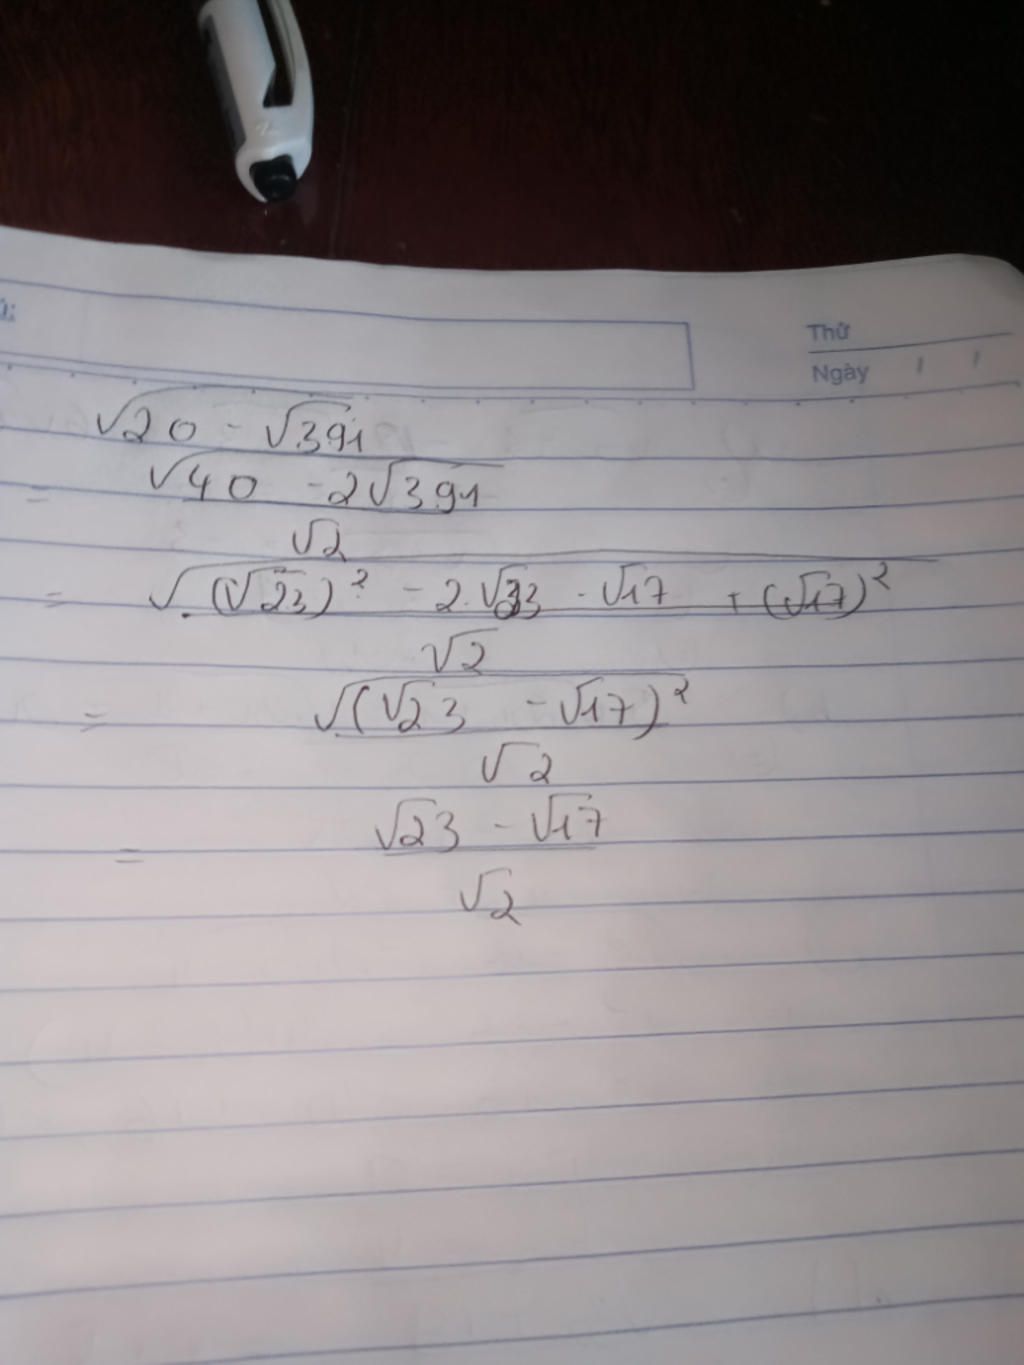 Thứ
Ngày / /
√(20 - √391)
= √(40 - 2√391)
√2
= √((√23)² - 2.√23 . √17 + (√17)²)
√2
= √((√23 - √17)²)
√2
= √23 - √17
√2